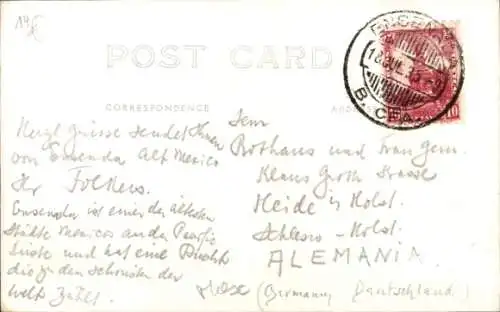 14€
POST CARD
CORRESPONDENCE
ENSENADA
18 JUL
B. CFA.
10
Herzl. Grüsse sendet Ihnen
von Ensenda Alt Mexico
Ihr Folkens.
Ensenada ist eine der ältesten
Städte Mexicos an der Pacific
Küste und hat eine Bucht
die zu den schönsten der
Welt zählt.
Herrn
Rothaus und Frau gem.
Klaus Groth Strasse
Heide in Holst.
Schlesw-Holst.
ALEMANIA
(Germany Deutschland)